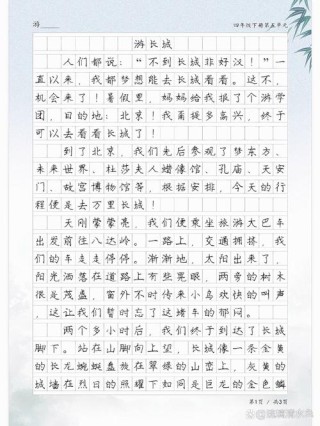 游____
四年级下册第五单元
游长城
人们都说:“不到长城非好汉!”一
直以来,我都梦想能去长城看看。这不,
机会来了!暑假里,妈妈给我报了个游学
团,目的地:北京!我甭提多高兴,终于
可以去看看长城了!
到了北京,我们先后参观了梦东方、
未来世界、杜莎夫人蜡像馆、孔庙、天安
门、故宫博物馆等,根据安排,今天的行
程便是去万里长城!
天刚蒙蒙亮,我们便乘坐旅游大巴车
出发前往八达岭。一路上,交通拥挤,我
们的车走走停停。渐渐地,太阳出来了,
阳光洒落在道路上有些晃眼,两旁的树木
很是茂盛,窗外不时传来小鸟欢快的叫声
,这让我们暂时忘了这堵车的郁闷。
两个多小时后,我们终于到达了长城
脚下。站在山脚向上望,长城像一条金黄
的长龙蜿蜒盘放在翠绿的山峦上,灰黄的
城墙在烈日的照耀下如同是巨龙的金色鳞
第1页 / 共3页